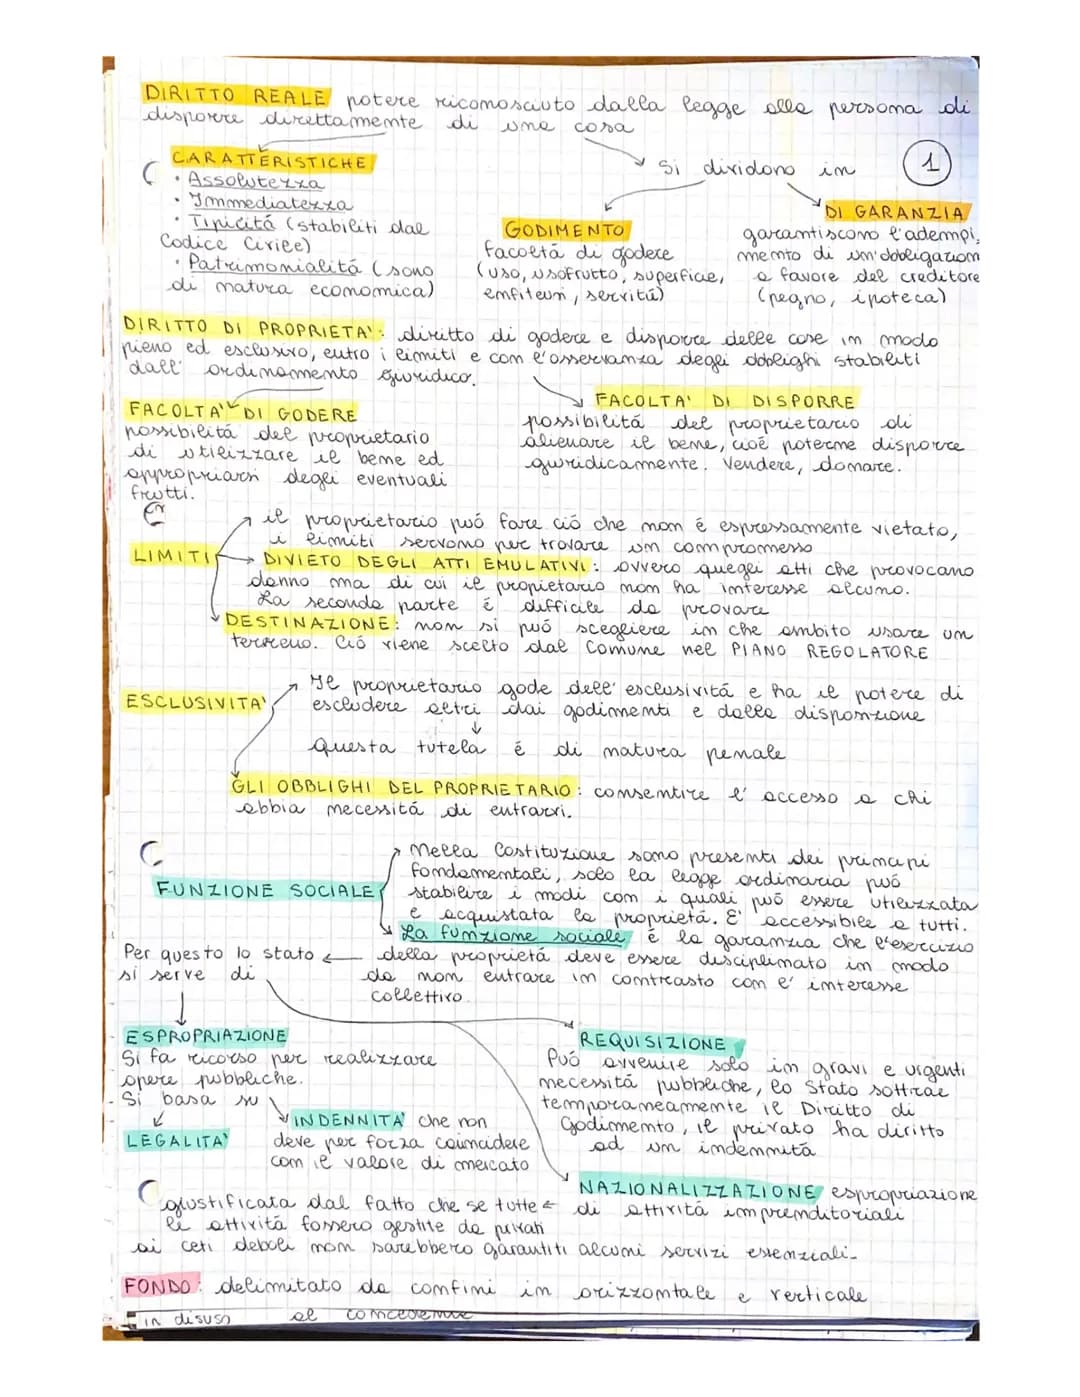 DIRITTO REALE potere riconosciuto dalla legge alla persona di
disporre direttamente di una cosa
CARATTERISTICHE
• Assolutezza
• Immediatezza
• Tipicitá (stabiliti dal
Codice Civile)
• Patrimonialitá (sono
di natura economica)
Si dividono in
1
GODIMENTO
facoltá di godere
(uso, usofrutto, superficie,
enfiteusi, servitú)
DI GARANZIA
garantiscono l'adempi
mento di un'obbligazion
a favore del creditore
(pegno, ipoteca)
DIRITTO DI PROPRIETA': diritto di godere e disporre delle cose in modo
pieno ed esclusivo, entro i limiti e con l'osservanza degli obblighi stabiliti
dall' ordinamento giuridico.
FACOLTA' DI GODERE
possibilitá del proprietario
di utilizzare il bene ed
appropriarsi degli eventuali
frutti.
FACOLTA' DI DISPORRE
possibilitá del proprietario di
alienare il bene, cioé poterne disporre
giuridicamente. Vendere, donare.
LIMITI
il proprietario puó fare ció che non é espressamente vietato,
i limiti servono per trovare un compromesso
DIVIETO DEGLI ATTI EMULATIVI: ovvero quegli atti che provocano
danno ma di cui il proprietario non ha interesse alcuno.
La seconda parte é difficile da provare
DESTINAZIONE: non si puó scegliere in che ambito usare un
terreno. Ció viene scelto dal Comune nel PIANO REGOLATORE
ESCLUSIVITA'
Il proprietario gode dell' esclusivitá e ha il potere di
escludere altri dai godimenti e dalla disposizione
questa tutela é di natura penale
GLI OBBLIGHI DEL PROPRIETARIO: consentire l' accesso a chi
abbia necessitá di entrarvi.
FUNZIONE SOCIALE
Nella Costituzione sono presenti dei principi
fondamentali, solo la legge ordinaria puó
stabilire i modi con i quali puó essere utilizzata
e acquistata la proprietá. E' accessibile a tutti.
La funzione sociale é la garanzia che l'esercizio
della proprietá deve essere disciplinato in modo
da non entrare in contrasto con l' interesse
collettivo.
Per questo lo stato
si serve di
ESPROPRIAZIONE
Si fa ricorso per realizzare
opere pubbliche.
Si basa su
LEGALITA'
INDENNITA' che non
deve per forza coincidere
con il valore di mercato
REQUISIZIONE
Puó avvenire solo in gravi e urgenti
necessitá pubbliche, lo Stato sottrae
temporaneamente il Diritto di
Godimento, il privato ha diritto
ad un indennitá
NAZIONALIZZAZIONE espropriazione
di attivitá imprenditoriali
giustificata dal fatto che se tutte
le attivitá fossero gestite da privati
ai ceti deboli non sarebbero garantiti alcuni servizi essenziali.
FONDO: delimitato da confini in orizzontale e verticale
in disuso al